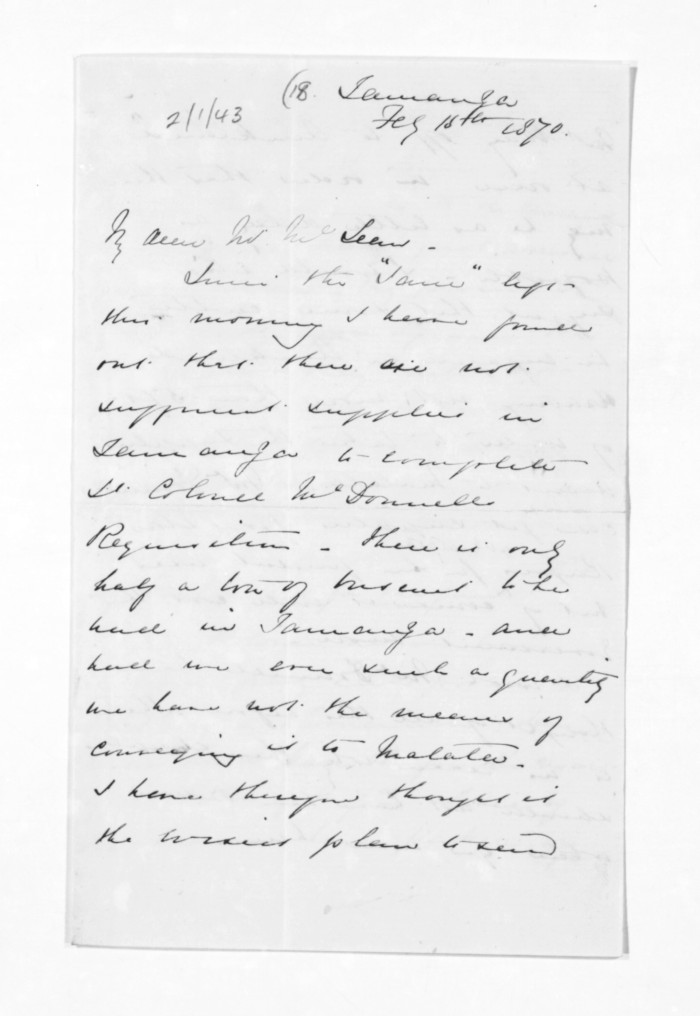 2/1/43
(18. Tauranga
Feb 18th 1870.
My dear Mr McLean -
Since the "Tauri" left
this morning I have found
out that there are not
sufficient supplies in
Tauranga to complete
Lt Colonel McDonnells
Requisition - there is only
half a ton of biscuit to be
had in Tauranga - and
had we even such a quantity
we have not the means of
conveying it to Matata.
I have therefore thought it
the wisest plan to send